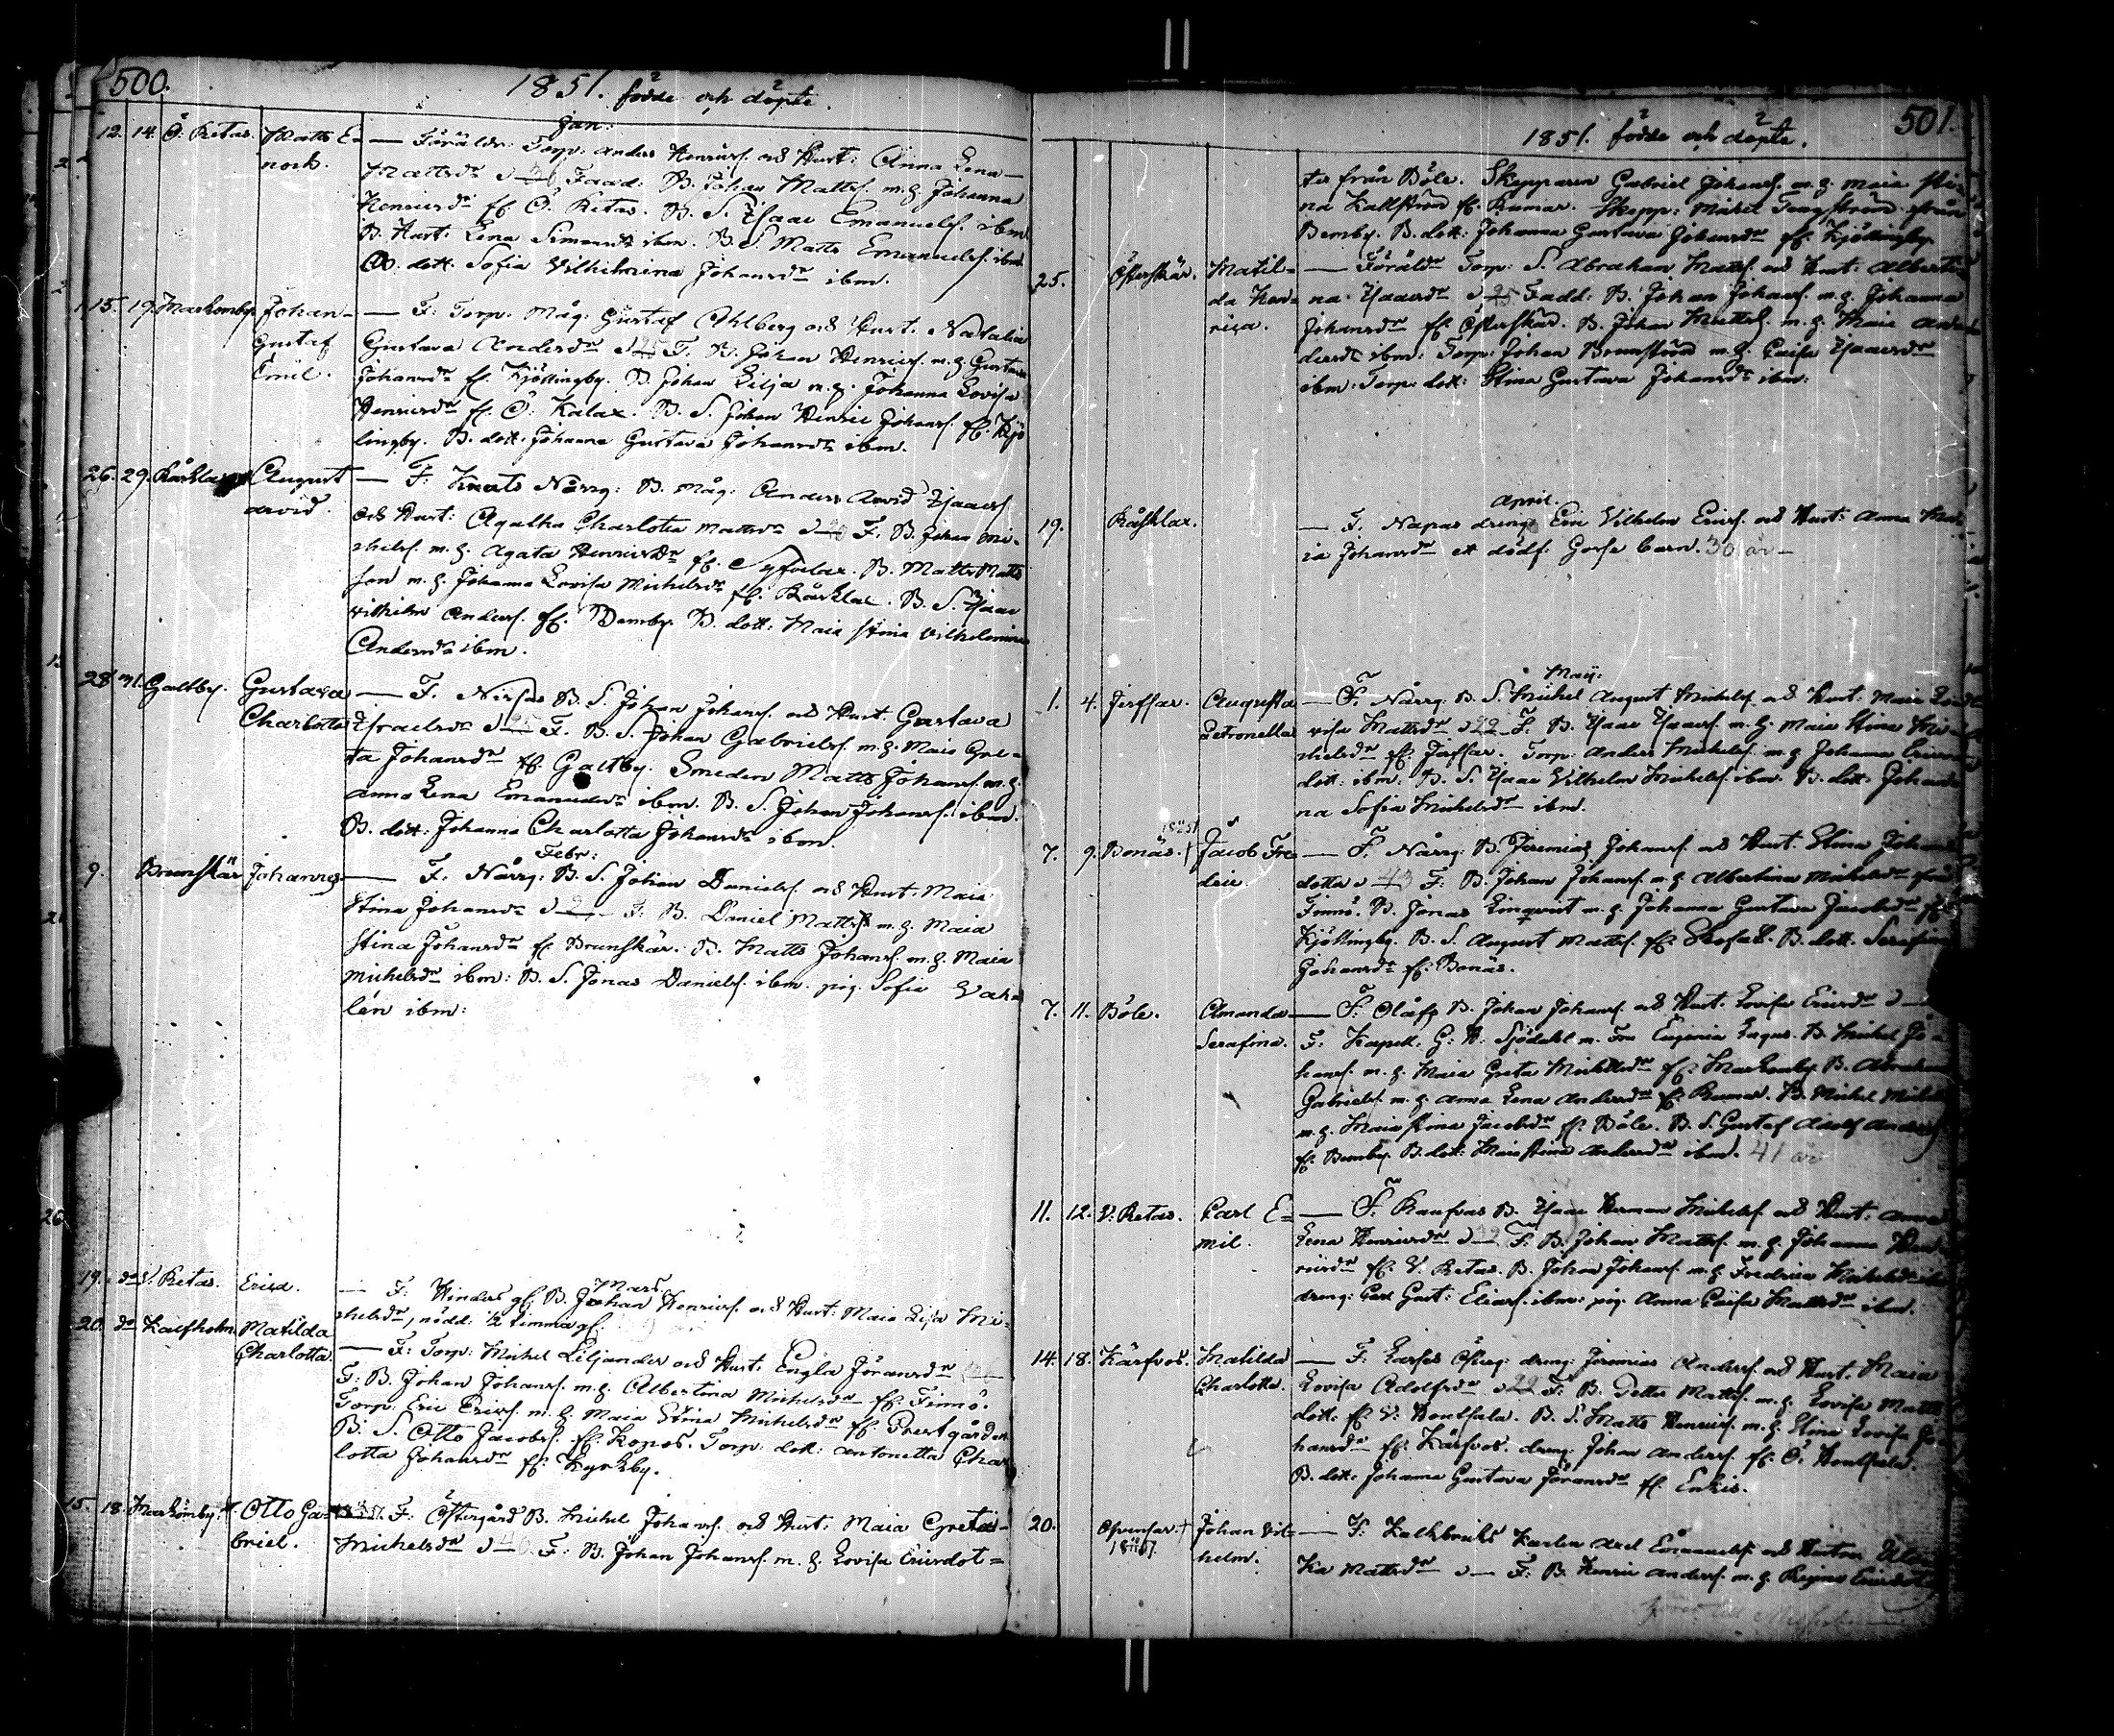 500.
1851. födde och döpte.
Jan:
12. 14. Ö. Retas. Matts E-
nock.
— Föräldr: Torp: Anders Henricss. och Hust: Anna Lena
Mattsdr Fadd: B. Johan Mattss. m.h. Johanna
Henricsdr fr. Ö. Retas. B. S. Isaac Emanuelss. ibm
B. Hust: Lena Simonsdr ibm. B. S. Matts Emanuelss. ibm
B. dott. Sofia Vilhelmina Johansdr ibm.
15. 19. Markomby Johan
Gustaf
Emil.
— F. Torp. Måg: Gustaf Ahlberg och Hust. Natalia
Gustava Andersdr 25 F. B. Johan Henricss. m.h. Gustava
Johansdr fr. Kjöttingby. B. Johan Lilja m.h. Johanna Lovisa
Henricsdr fr. Ö. Kalax. B. S. Johan Henric Johanss. fr. Kjöt
tingby. B. dott. Johanna Gustava Johansdr ibm.
26. 29. August
Arvid.
— F. Knuts Nårrg: B. Måg: Anders Arvid Isaacss.
och Hust: Agatha Charlotta Mattsdr F. B. Johan Mi-
chelss. m.h. Agata Henricsdr fr. B. Matts Matts
son m.h. Johanna Lovisa Michelsdr fr. B. S. Isaac
Vilhelm Anderss. fr. Bemby. B. dott: Maia Stina Vilhelmina
Andersdr ibm.
28 31. Galtby. Gustava
Charlotta
— F. B. S. Johan Johanss. och Hust. Gustava
Israelsdr 25 F. B. S. Johan Gabrielss. m.h. Maia Gre-
ta Johansdr fr. Galtby. Smeden Matts Johanss. m.h.
Anna Lena Emanuelsdr ibm. B. S. Johan Johanss. ibm.
B. dott: Johanna Charlotta Johansdr ibm.
Febr:
9. Brunskär Johannes.
— F. Nårrg: B. S. Johan Danielss. och Hust. Maia
Stina Johansdr F. B. Daniel Mattss. m.h. Maia
Stina Johansdr fr. Brunskär. B. Matts Johanss. m.h. Maia
Michelsdr ibm: B. S. Jonas Danielss. ibm. pig. Sofia
lén ibm:
Mars
19. do V. Retas. Erica.
— F. Hinders gl. B. Johan Henricss. och Hust: Maia Lisa Mi-
chelsdr, nödd. ½ timma gl.
20. do Kalfholm. Matilda
Charlotta.
— F. Torp: Michel Liljander och Hust. Engla Jöransdr
F: B. Johan Johanss. m.h. Albertina Michelsdr fr. Finnö.
Torp: Eric Ericss. m.h. Maia Stina Michelsdr fr. Prestgården
B. S. Otto Jacobss. fr. Kopos. Torp: dott. Antonetta Char
lotta Johansdr fr. Kyrkby.
15. 18. Markomby. Otto Ga-
briel.
F. Östergård B. Michel Johanss. och Hust. Maia Greta
Michelsdr 40 F: B. Johan Johanss. m.h. Lovisa Ericsdot=
501.
1851. födde och döpte.
ter från Böle. Skepparen Gabriel Johanss. m.h. Maia Sti-
na Kallström fr. Rumar. Skepp: Michel Tengström från
Bemby. B. dott: Johanna Gustava Johansdr fr. Kjöttingby.
25. Österskär. Matil=
da Hen=
rica.
— Föräldr Torp: S. Abraham Mattss. och Hust: Alberti-
na Isaacsdr 25 Fadd: B. Johan Johanss. m.h. Johanna
Johansdr fr. Österskär. B. Johan Mattss. m.h. Maia An-
dersdr ibm: Torp: Johan Brunström m.h. Caisa Isaacsdr
ibm: Torp: dott: Stina Gustava Johansdr ibm:
April.
19.
— F. Napas dreng Eric Vilhelm Ericss. och Hust: Anna Ma
ia Johansdr ett dödf: Gosse barn. 30 år —
Maij:
1. 4. Augusta
Petronella
— F. Nårrg. B. S. Michel August Michelss. och Hust. Maia Lo
visa Mattsdr 22 F. B. Isaac Isaacss. m.h. Maia Stina Mi
chelsdr fr. Torp. Anders Michelss. m.h. Johanna Erics
dott: ibm: B. S. Isaac Vilhelm Michelss. ibm. B. dott. Johan
na Sofia Michelsdr ibm.
7. 9. Bonäs. Jacob Fre
dric.
— F. Nårrg. B. Jeremias Johanss. och Hust. Stina Johans
dotter 43 F: B. Johan Johanss. m.h. Albertina Michelsdr från
Finnö. B. Jonas Linqvist m.h. Johanna Gustava Jacobsdr fr.
Kjöttingby. B. S. August Mattss. fr. B. dott. Serafina
Johansdr fr. Bonäs.
7. 11. Böle. Amanda
Serafina.
— F. Olofs B. Johan Johanss. och Hust. Lovisa Ericsdr
F: Kapell: G: H. Sjödahl m. Fru Eugenia B. Michel Jo-
hanss. m.h. Maia Greta Michelsdr fr. Markomby. B. Abraham
Gabrielss. m.h. Anna Lena Andersdr fr. Rumar. B. Michel Michelss.
m.h. Maia Stina Jacobsdr fr. Böle. B. S. Gustaf Adolf Anderss
fr. Bemby. B. dott: Maia Stina Andersdr ibm. 41 år
11. 12. V. Retas. Carl E=
mil.
— F. B. Isaac Herman Michelss. och Hust. Anna
Lena Henricsdr F: B. Johan Mattss. m.h. Johanna Hen
ricsdr fr. V. Retas. B. Johan Johanss. m.h. Fredrica Michelsdr ibm
dreng: Carl Gust: Eliass. ibm: pig. Anna Caisa Mattsdr ibm.
14. 18. Kärfvos. Matilda
Charlotta.
— F. Larses dreng: Jeremias Anderss. och Hust. Maia
Lovisa Adolfsdr 22 F. B. Petter Mattss. m.h. Lovisa Matts
dott: fr. V. Hontsala. B. S. Matts Henricss. m.h. Stina Lovisa Jo
hansdr fr. Kärfvos. dreng: Johan Anderss. fr. Ö. Hontsala.
B. dott. Johanna Gustava Jöransdr fr. Enkis.
20. Johan Vil=
helm.
— F. Kalkbruks Karlen Axel Emanuelss. och Hustru Ulri
ka Mattsdr F. B. Henric Anderss. m.h. Regina Ericsdott